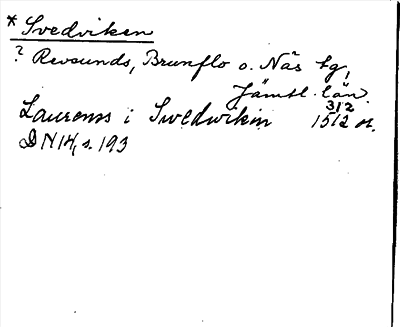 * Svedviken
? Revsunds, Brunflo o. Näs tg,
Jämtl. län.
Laurens i Swedwikin 15 3/2 12 or.
DN 14, s. 193